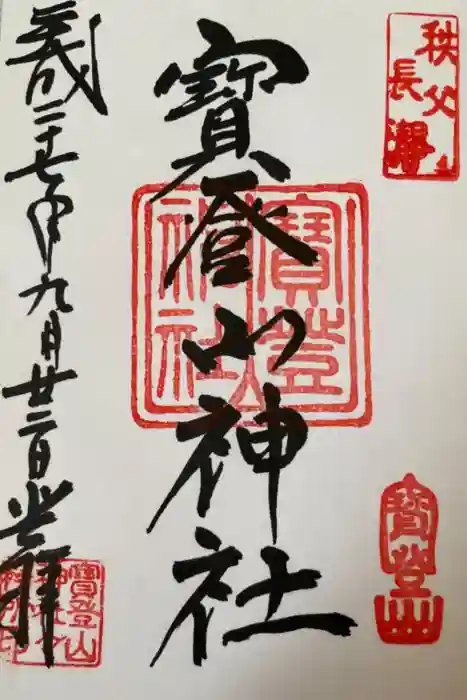 秩父
長瀞
寶登山神社
寶登山神社
寶登山
平成二十七年九月廿二日 参拝
寶登山
神社